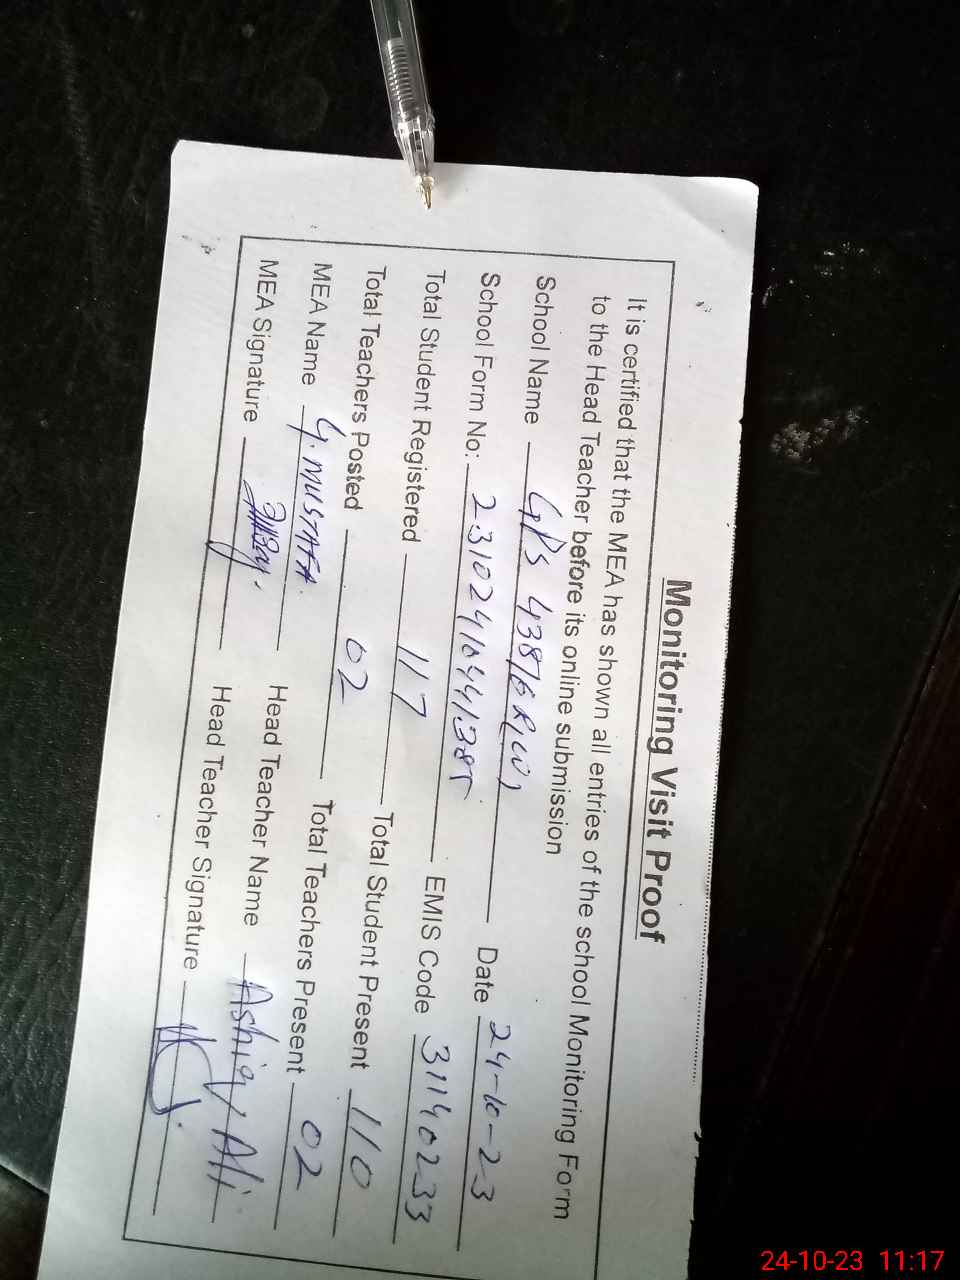 Monitoring Visit Proof
It is certified that the MEA has shown all entries of the school Monitoring Form
to the Head Teacher before its online submission
School Name GPS 438/6R(W) Date 24-10-23
School Form No: 23102410441385 EMIS Code 31140233
Total Student Registered 117 Total Student Present 110
Total Teachers Posted 02 Total Teachers Present 02
MEA Name G. MUSTAFA Head Teacher Name Ashiq Ali
MEA Signature Head Teacher Signature
24-10-23 11:17